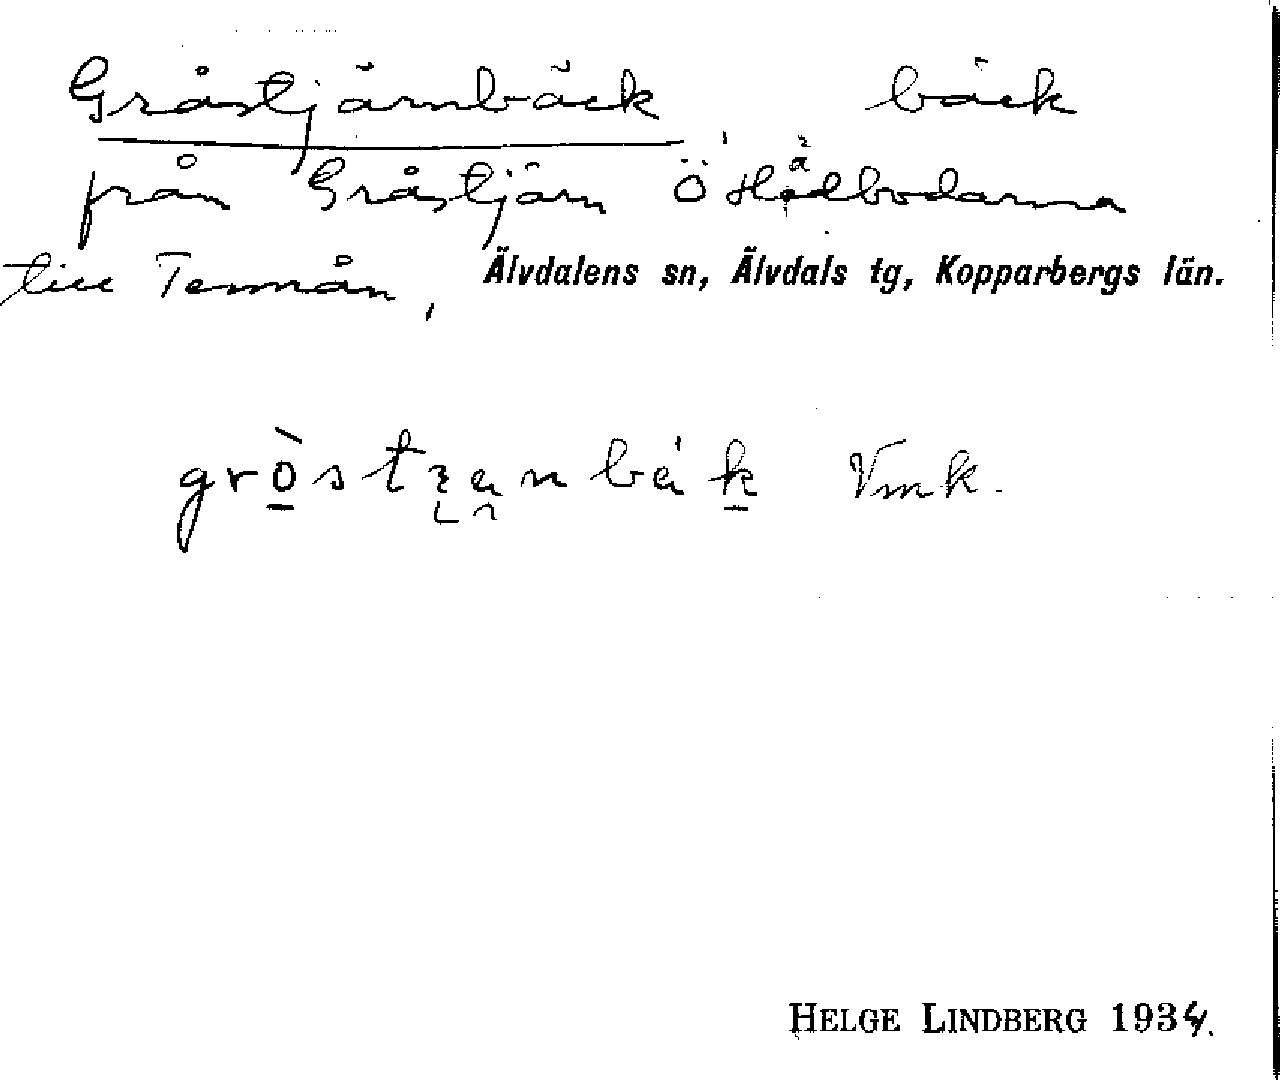 Gråstjärnbäck bäck
från Gråstjärn Ö
till Tennån, Älvdalens sn, Älvdals tg, Kopparbergs län.
Vmk.
HELGE LINDBERG 1934.